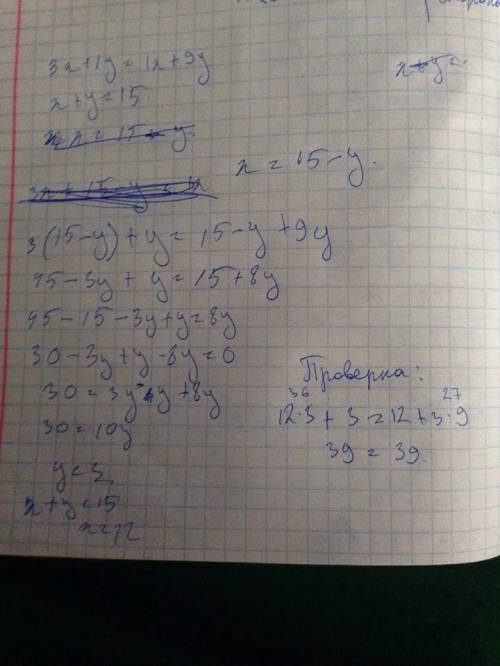 3x+1y=1x+9y
x+y=15
x = 15-y.
3(15-y)+y=15-y+9y
45-3y+y=15+8y
45-15-3y+y=8y
30-3y+y-8y=0
30=3y-y+8y
30=10y
y=3
x+y=15
x=12
Проверка:
36 27
12·3+3=12+3·9
39=39.